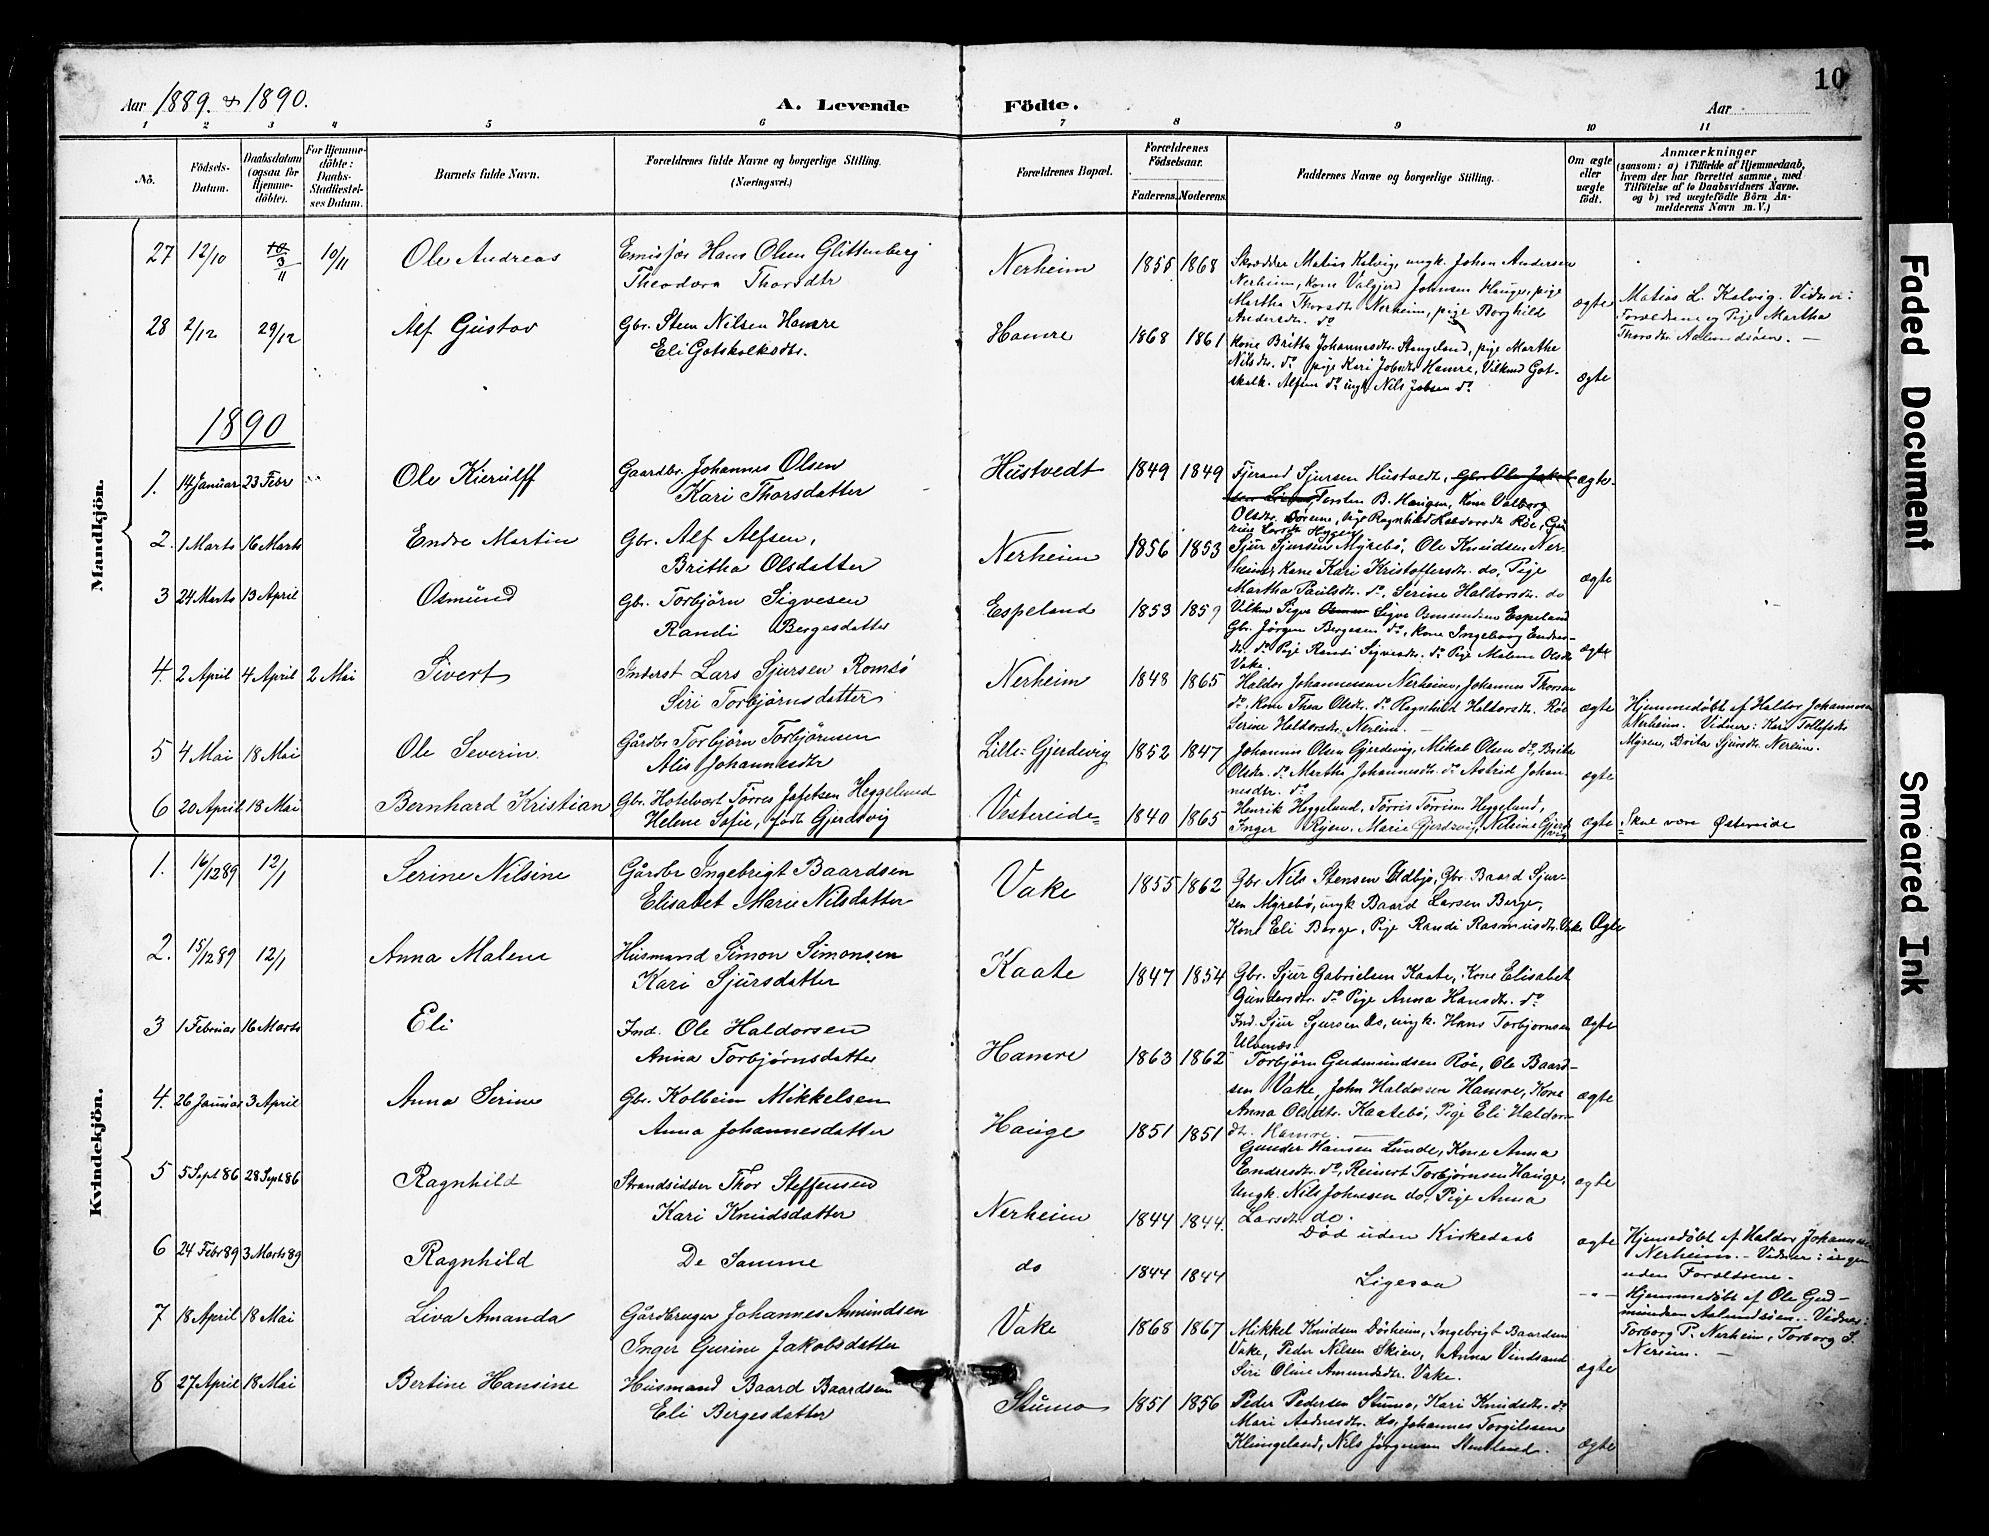 Aar 1889. & 1890. A. Levende Födte. Aar 10
1 2 3 4 5 6 7 8 9 10 11
No. Födsels-Datum. Daabsdatum (ogsaa for Hjemme-döbte). For Hjemme-döbte: Daabs-Stadfæstel-ses Datum. Barnets fulde Navn. Forældrenes fulde Navne og borgerlige Stilling. (Næringsvei.) Forældrenes Bopæl. Forældrenes Födselsaar. Faderens. Moderens. Faddernes Navne og borgerlige Stilling. Om ægte eller uægte födt. Anmærkninger (saasom: a) i Tilfælde af Hjemmedaab, hvem der har forrettet samme, med Tilföielse af to Daabsvidners Navne. og b) ved uægtefödte Börn An-melderens Navn m. V.)
Mandkjön.
27 12/10 3/11 10/11 Ole Andreas Emisjær Hans Olsen Glittenberg
Theodora Thorsdtr Nerheim 1855 1868 Skrædder Matias Kalvig, ungk. Johan Andersen
Nerheim, Kone Valgjerd Johnsen Hauge, pige
Martha Thorsdtr Nerheim, pige Borghild
Andersdtr. do ægte Matias L. Kalvig. Vidner:
Forældrene og Pige Martha
Thorsdtr
28 2/12 29/12 Alf Gustav Gbr. Sten Nilsen Hamre
Eli Gotskalksdtr. Hamre 1868 1861 Kone Britta Johannesdtr. Stangeland, pige Marthe
Nilsdtr. do pige Kari Jobsdtr Hamre, Got-
skalk. Alfsen do ungk. Nils Jobsen do ægte
1890
1. 14 Januar 23 Febr Ole Kierulff Gaardbr. Johannes Olsen
Kari Thorsdatter Hustvedt 1849 1849 Sjursen Hustvedt, Gbr. Ole
Torsten B. Haugen, Kone Valborg
Olsdtr. Pige Ragnhild Haldorsdtr Röe, ægte
2. 1 Marts 16 Marts Endre Martin Gbr. Alf Alfsen,
Britha Olsdatter Nerheim 1856 1853 Sjur Sjursen Myrebö, Ole Knudsen Ner-
heim, Kone Kari Kristoffersdtr. do, Pige
Martha Paulsdtr. do, Serine Haldorsdtr. do ægte
3 24 Marts 13 April Osmund Gbr. Torbjörn Sigvesen
Randi Bergesdatter Espeland 1853 1859 Sigve Osmundsen Espeland
Gbr. Jörgen Bergesen do, Kone Ingeborg Endres-
dtr. do Pige Randi Sigvesdtr. do Pige Malene Olsdtr
Vake. ægte
4. 2 April 4 April 2 Mai Sivert Inderst Lars Sjursen Romsö
Siri Torbjörnsdatter Nerheim 1848 1865 Haldor Johannessen Nerheim, Johannes Thorsen
do, Kone Thea Olsdtr. do Ragnhild Haldorsdtr. Röe
Serine Haldorsdtr. Nereim. ægte Hjemmedöbt af Haldor Johannessen
Nerheim. Vidner: Kari Tollefsdtr
Myren, Brita Sjursdtr. Nereim.
5 4 Mai 18 Mai Ole Severin Gårdbr Torbjörn Torbjörnsen
Alis Johannesdtr Lille-Gjerdevig 1852 1847 Johannis Olsen Gjerdevig, Mikal Olsen do, Brita
Olsdtr. do Martha Johannesdtr. do Astrid Johan-
nesdtr. do ægte
6 20 April 18 Mai Bernhard Kristian Gbr. Hotelvært Törres Jafetsen Heggelund
Helene Sofie, født Gjerdevig Vestereide 1840 1865 Henrik Heggelund, Törris Törrisen Heggelund,
Inger Marie Gjerdevig, Nilsine Gjerdevig ægte Skal være Østereide
Kvindekjön.
1. 16/12 89 12/1 Serine Nilsine Gårdbr Ingebrigt Baardsen
Elisabet Marie Nilsdatter Vake 1855 1862 Gbr Nils Stensen Udbjo, Gbr. Baard Sjur-
sen Myrebö, ungk Baard Larsen Berge,
Kone Eli Berge, Pige Randi Rasmusdtr. Vake Ægte
2. 15/12 89 12/1 Anna Malene Husmand Simon Simonsen
Kari Sjursdatter Kaate 1847 1854 Gbr. Sjur Gabrielsen Kaate, Kone Elisabet
Gundersdtr. do Pige Anna Hansdtr. do
Ind. Sjur Sjursen do, ungk. Hans Torbjornsen
Ulvenæs. ægte
3 1 Februar 16 Marts Eli Ind. Ole Haldorsen
Anna Torbjørnsdatter Hamre 1863 1862 Torbjörn Gudmundsen Röe, Ole Baard-
sen Vake, John Haldorsen Hamre, Kone
Anna Olsdtr. Kaatebö, Pige Eli Haldors-
dtr. Hamre. ægte
4. 26 Januar 3 April Anna Serine Gbr. Kolbein Mikkelsen
Anna Johannesdatter Hauge 1851 1851 Gunder Hansen Lunde, Kone Anna
Endresdtr. do, Reinert Torbjørnsen Hauge,
Ungk. Nils Johnsen do. Pige Anna
Larsdtr do. ægte
5 5 Sept 86 28 Sept 86 Ragnhild Strandsidder Thor Steffensen
Kari Knudsdatter Nerheim 1844 1844. Død uden Kirkedaab ægte Hjemmedöbt af Haldor Johannessen
Nerheim. - Vidner: ingen
uden Forældrene.
6 24 Febr 89 3 Marts 89 Ragnhild De Samme do 1844 1844 Ligesaa - " - Hjemmedöbt af Ole Gud-
mundsen Vidner:
Torborg P. Nerheim, Torborg S.
Nereim.
7 18 April 18 Mai Liva Amanda Gårdbruger Johannes Amundsen
Inger Gurine Jakobsdatter Vake 1868 1867 Mikkel Knudsen Dörheim, Ingebrigt Baardsen
Vake, Peder Nilsen Skien, Anna Vindsand
Siri Oline Amundsdtr. Vake. ægte
8 27 April 18 Mai Bertine Hansine Husmand Baard Baardsen
Eli Bergesdatter Stumo 1851 1856 Peder Pedersen Stumo, Kari Knudsdtr. do
Mari do, Johannes Torgilssen
Klungeland, Nils Jörgensen ægte
Faded Document
Smeared Ink